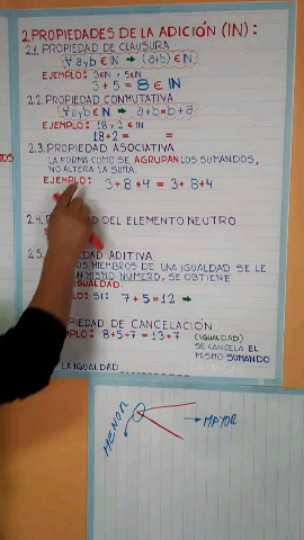 2. PROPIEDADES DE LA ADICIÓN (IN):
2.1. PROPIEDAD DE CLAUSURA
∀ a y b ∈ IN → (a+b) ∈ IN
EJEMPLO: 3∈IN ∧ 5∈IN
3 + 5 = 8 ∈ IN
2.2. PROPIEDAD CONMUTATIVA
∀ a y b ∈ IN → a+b=b+a
EJEMPLO: 18 y 2 ∈ IN
18+2 = =
2.3. PROPIEDAD ASOCIATIVA
LA FORMA COMO SE AGRUPAN LOS SUMANDOS,
NO ALTERA LA SUMA.
EJEMPLO: 3+8+4 = 3+ 8+4
2.4. DAD DEL ELEMENTO NEUTRO
2.5. EDAD ADITIVA
OS MIEMBROS DE UNA IGUALDAD SE LE
UN MISMO NÚMERO, SE OBTIENE
IGUALDAD.
LO: SI: 7+5=12 →
PIEDAD DE CANCELACIÓN
PLO: 8+5+7=13+7 (IGUALDAD)
SE CANCELA EL
MISMO SUMANDO
LA IGUALDAD
MENOR
MAYOR